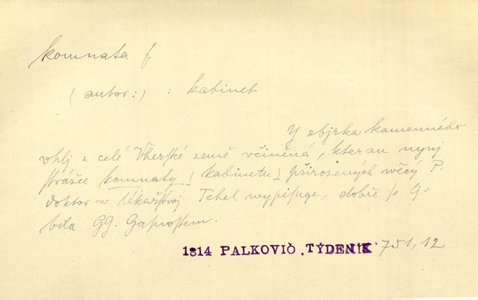 komnata f.
(autor:) : kabinet
Y zbjrka kamenného
vhlj z celé Vherské země včiněná, kterau nynj
strážce komnaty (kabinetu) přirozených wěcý P.
doktor w lékařstwj Tehel wypisuge, dobře se G-
bila GG. Gasnostem.
1814 PALKOVIČ, TÝDENÍK 751,12